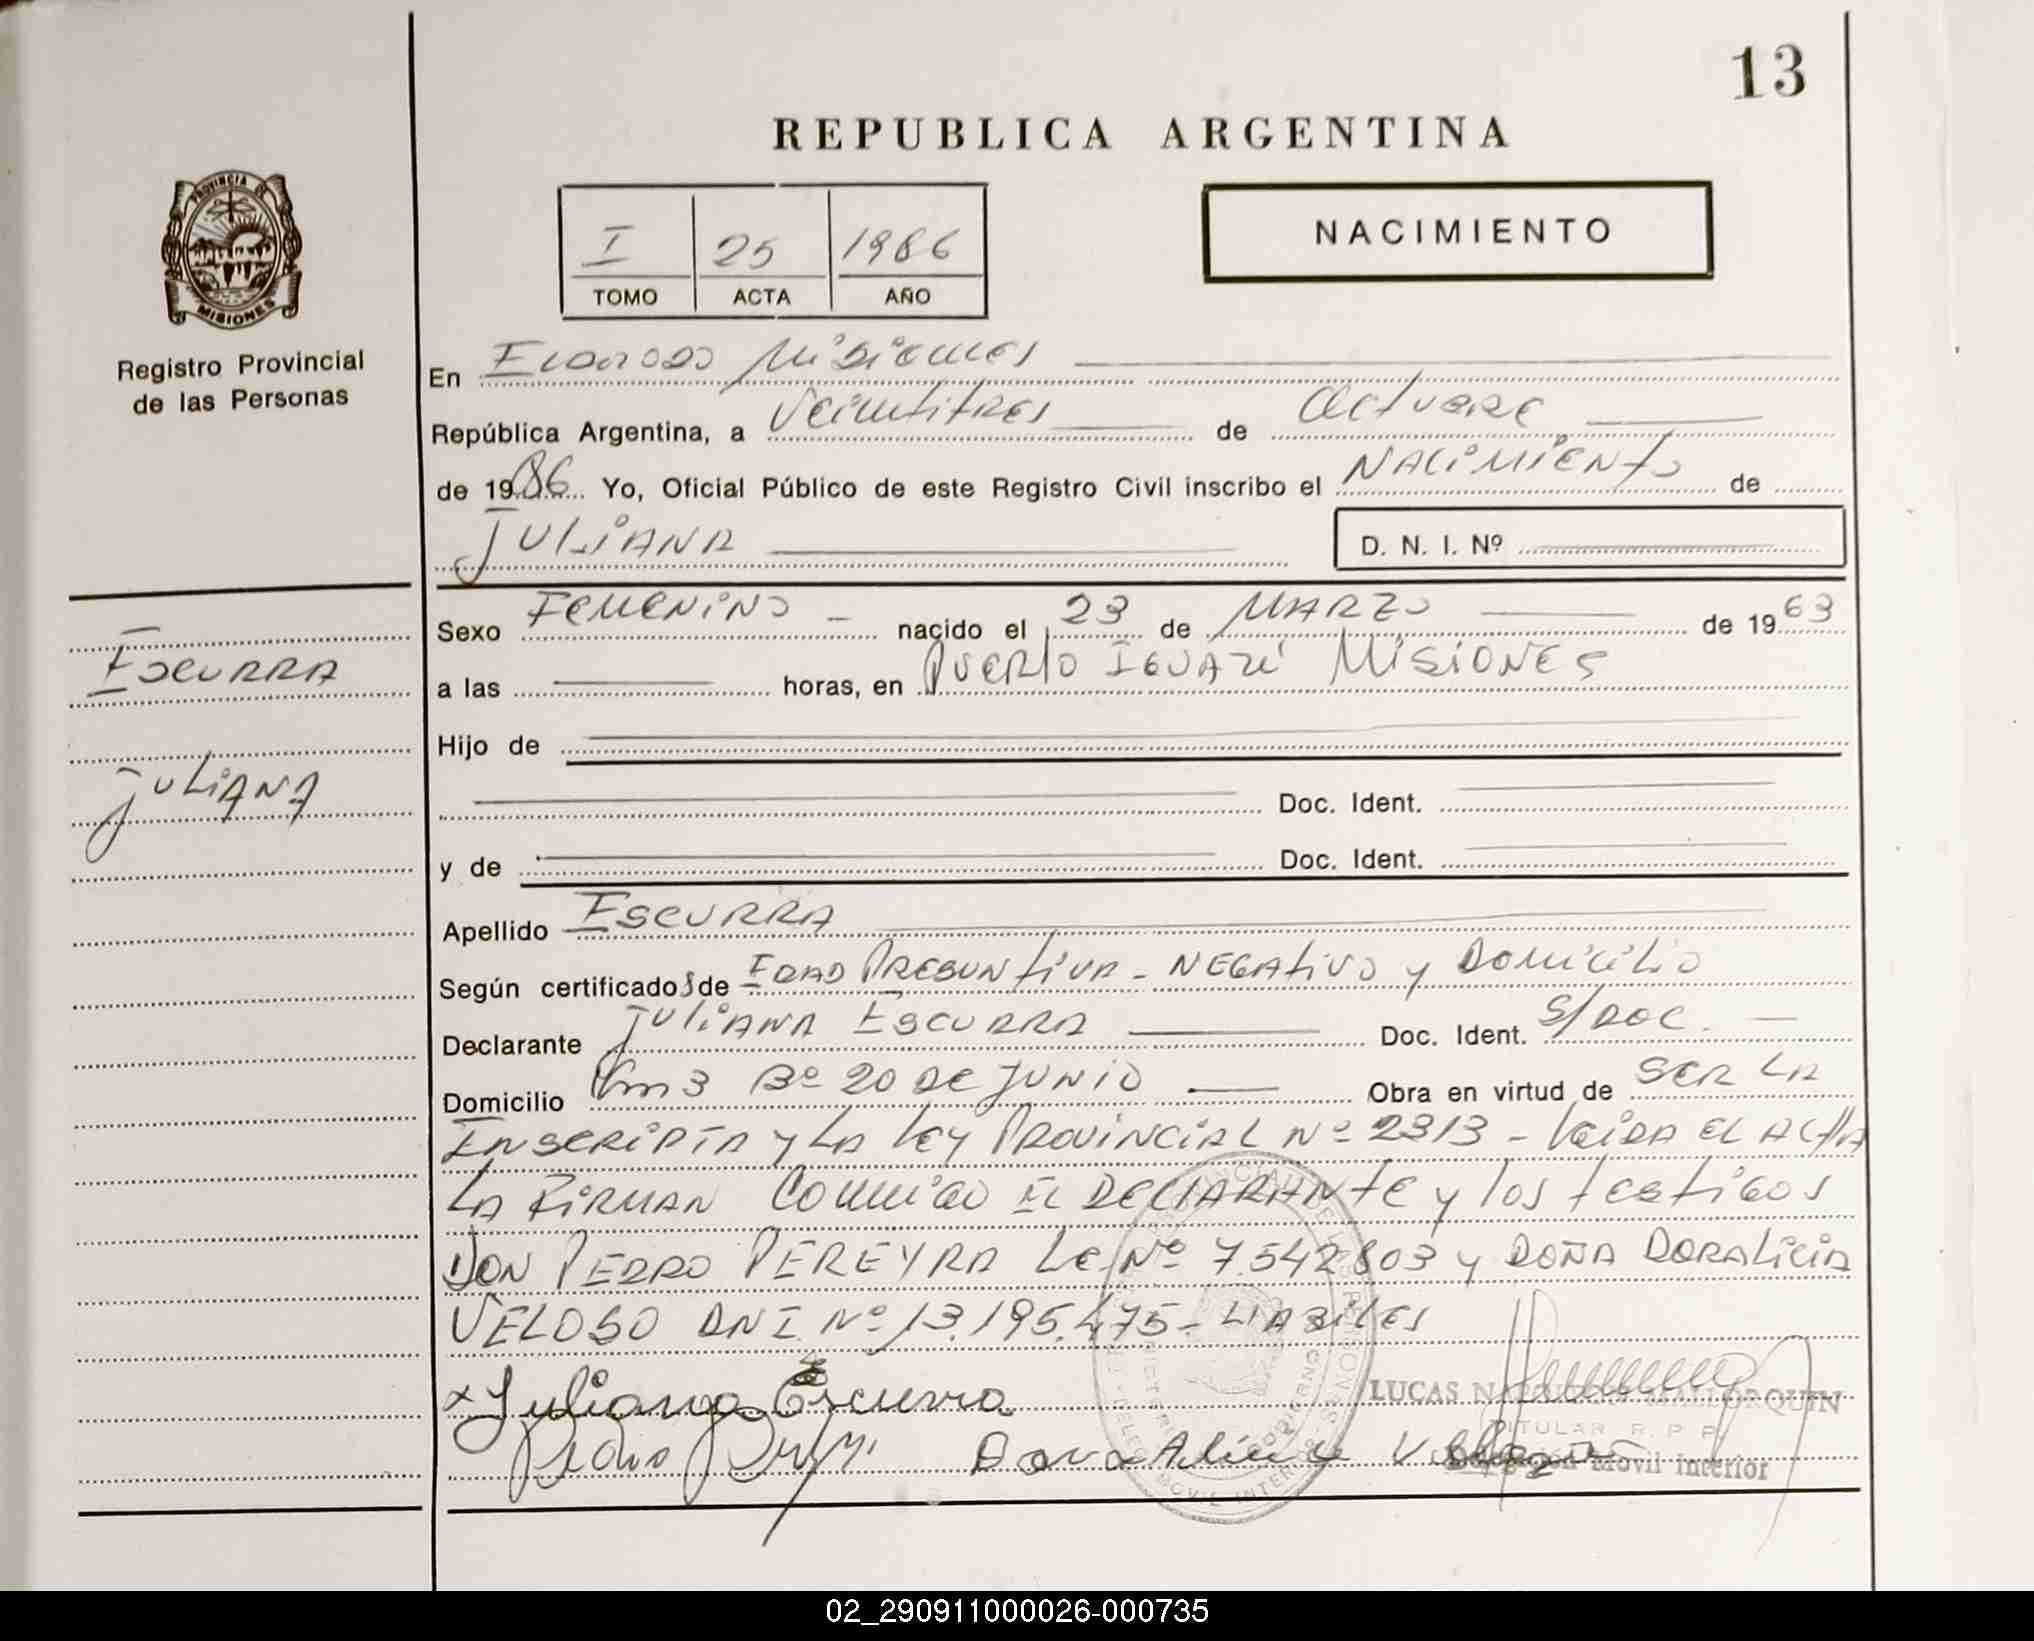 13
REPUBLICA ARGENTINA
PROVINCIA DE
MISIONES
Registro Provincial
de las Personas
I 25 1986
TOMO ACTA AÑO
NACIMIENTO
En Eldorado Misiones
República Argentina, a Veintitres de Octubre
de 1986 Yo, Oficial Público de este Registro Civil inscribo el NACIMIENTO de
JULIANA
D. N. I. Nº
ESCURRA
JULIANA
Sexo FEMENINO nacido el 23 de MARZO de 1963
a las horas, en PUERTO IGUAZÚ MISIONES
Hijo de
Doc. Ident.
y de Doc. Ident.
Apellido ESCURRA
Según certificado s de EDAD PRESUNTIVA - NEGATIVO y DOMICILIO
Declarante JULIANA ESCURRA Doc. Ident. S/DOC.
Domicilio Km 3 Bº 20 DE JUNIO Obra en virtud de SER LA
INSCRIPTA y LA LEY PROVINCIAL Nº 2313 - Leida EL ACTA
LA FIRMAN CONMIGO EL DECLARANTE y los testigos
DON PEDRO PEREYRA LE. Nº 7.542803 y DOÑA DORALICIA
VELOSO DNI Nº 13.195.475 - HABILES
x Juliana Escurra
LUCAS
TITULAR R. P. P.
Delegación Movil Interior
02_290911000026-000735